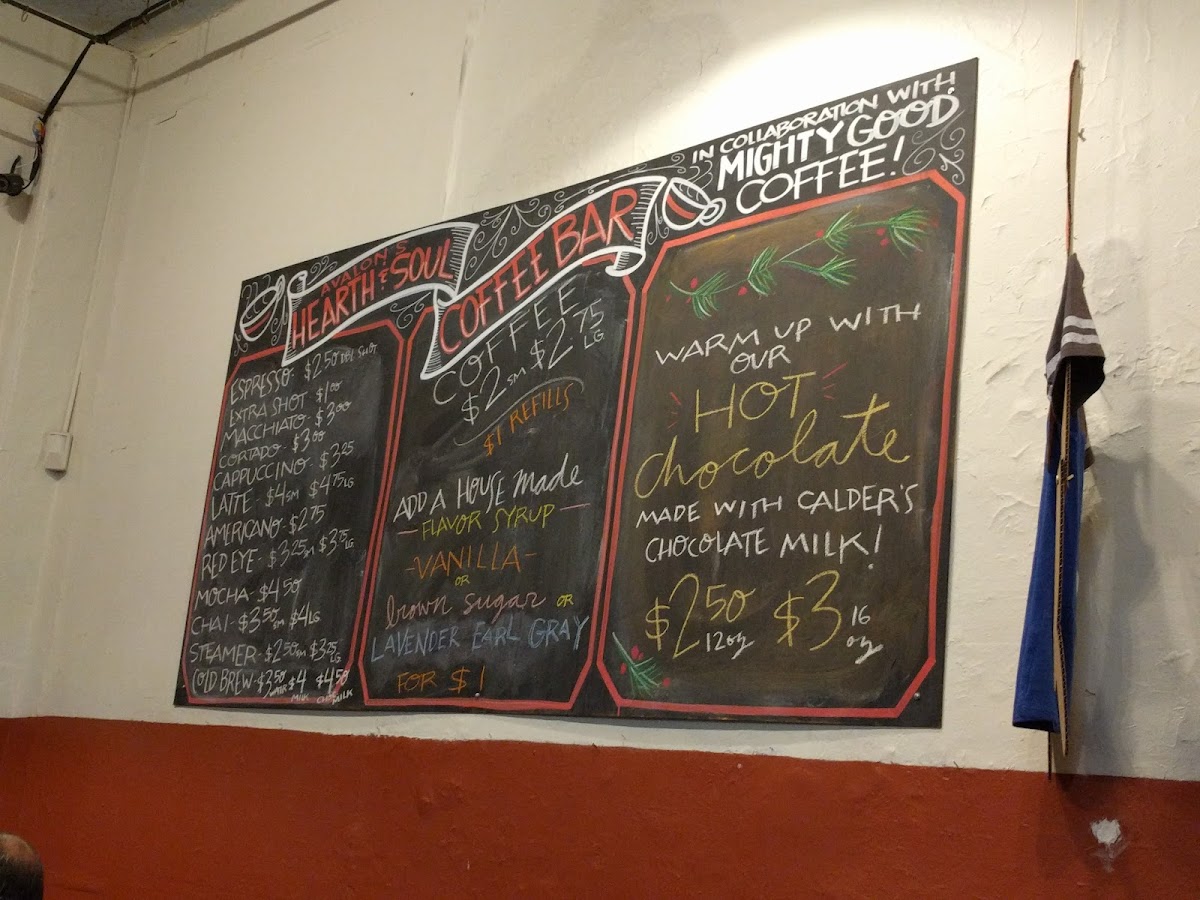 IN COLLABORATION WITH
MIGHTY GOOD
COFFEE!
AVALON'S
HEARTH & SOUL
COFFEE BAR
ESPRESSO- $2.50 DBL SHOT
EXTRA SHOT $1.00
MACCHIATO- $3.00
CORTADO- $3.00
CAPPUCCINO- $3.25
LATTE- $4 SM $4.75 LG
AMERICANO- $2.75
RED EYE- $3.25 SM $3.75 LG
MOCHA- $4.50
CHAI- $3.50 SM $4 LG
STEAMER- $2.50 SM $3.25 LG
COLD BREW- $3.50 $4 $4.50
MILK MILK
COFFEE
$2 SM $2.75 LG
$1 REFILLS
ADD A HOUSE made
-FLAVOR SYRUP-
-VANILLA-
OR
brown sugar OR
LAVENDER EARL GRAY
FOR $1
WARM UP WITH
OUR
HOT
chocolate
MADE WITH CALDER'S
CHOCOLATE MILK!
$2.50 12oz $3 16 oz